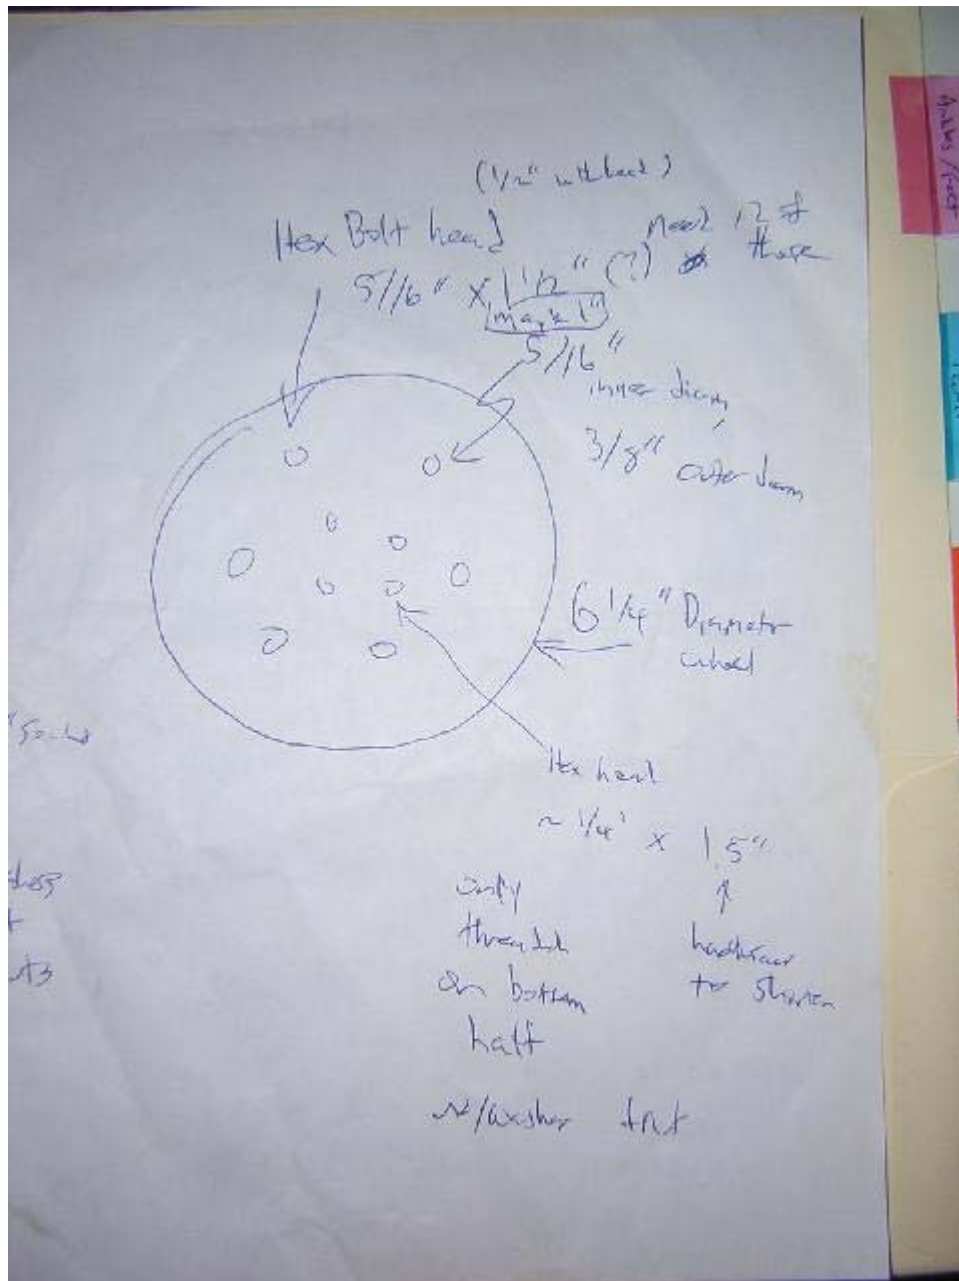 (1/2" with head)
Hex Bolt head
Need 12 of
these
5/16" x 1 1/2" (?)
maybe 1"
5/16"
inner diam,
3/8" outer diam
6 1/4" Diameter
wheel
Hex head
~ 1/4' x 1.5"
only
threaded
on bottom
half
had
to shorten
w/washer + nut
Ankles/feet